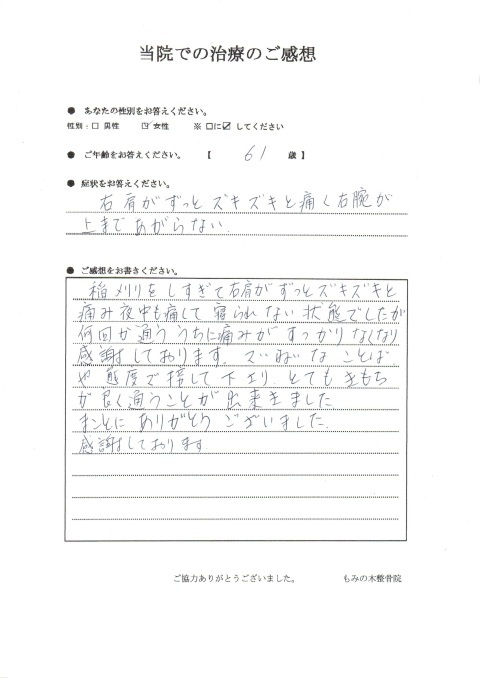 当院での治療のご感想
● あなたの性別をお答えください。
性別：□ 男性 ☑ 女性 ※ □に☑ してください
● ご年齢をお答えください。 【 61 歳 】
● 症状をお答えください。
右肩がずっとズキズキと痛く右腕が
上まであがらない.
● ご感想をお書きください。
稲メリリをしすぎて右肩がずっとズキズキと
痛み夜中も痛して寝られない状態でしたが
何回か通ううちに痛みがすっかりなくなり
感謝しております.      なことば
や態度で接して下エリ とてもきもち
が良く通うことが出来ました
まことにありがとうございました.
感謝しております
ご協力ありがとうございました。 もみの木整骨院